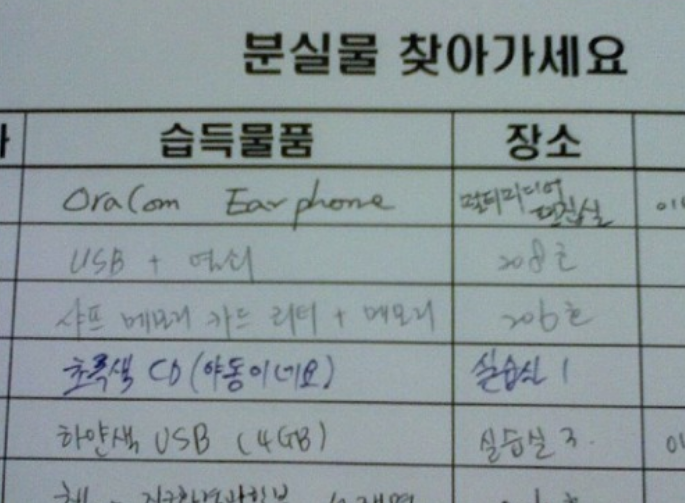 분실물 찾아가세요
습득물품 장소
OraCom Earphone 멀티미디어 편집실
USB + 열쇠 208호
샤프 메모리 카드 리더 + 메모리 206호
초록색 CD (야동이네요) 실습실 1
하얀색 USB (4GB) 실습실 3.
책